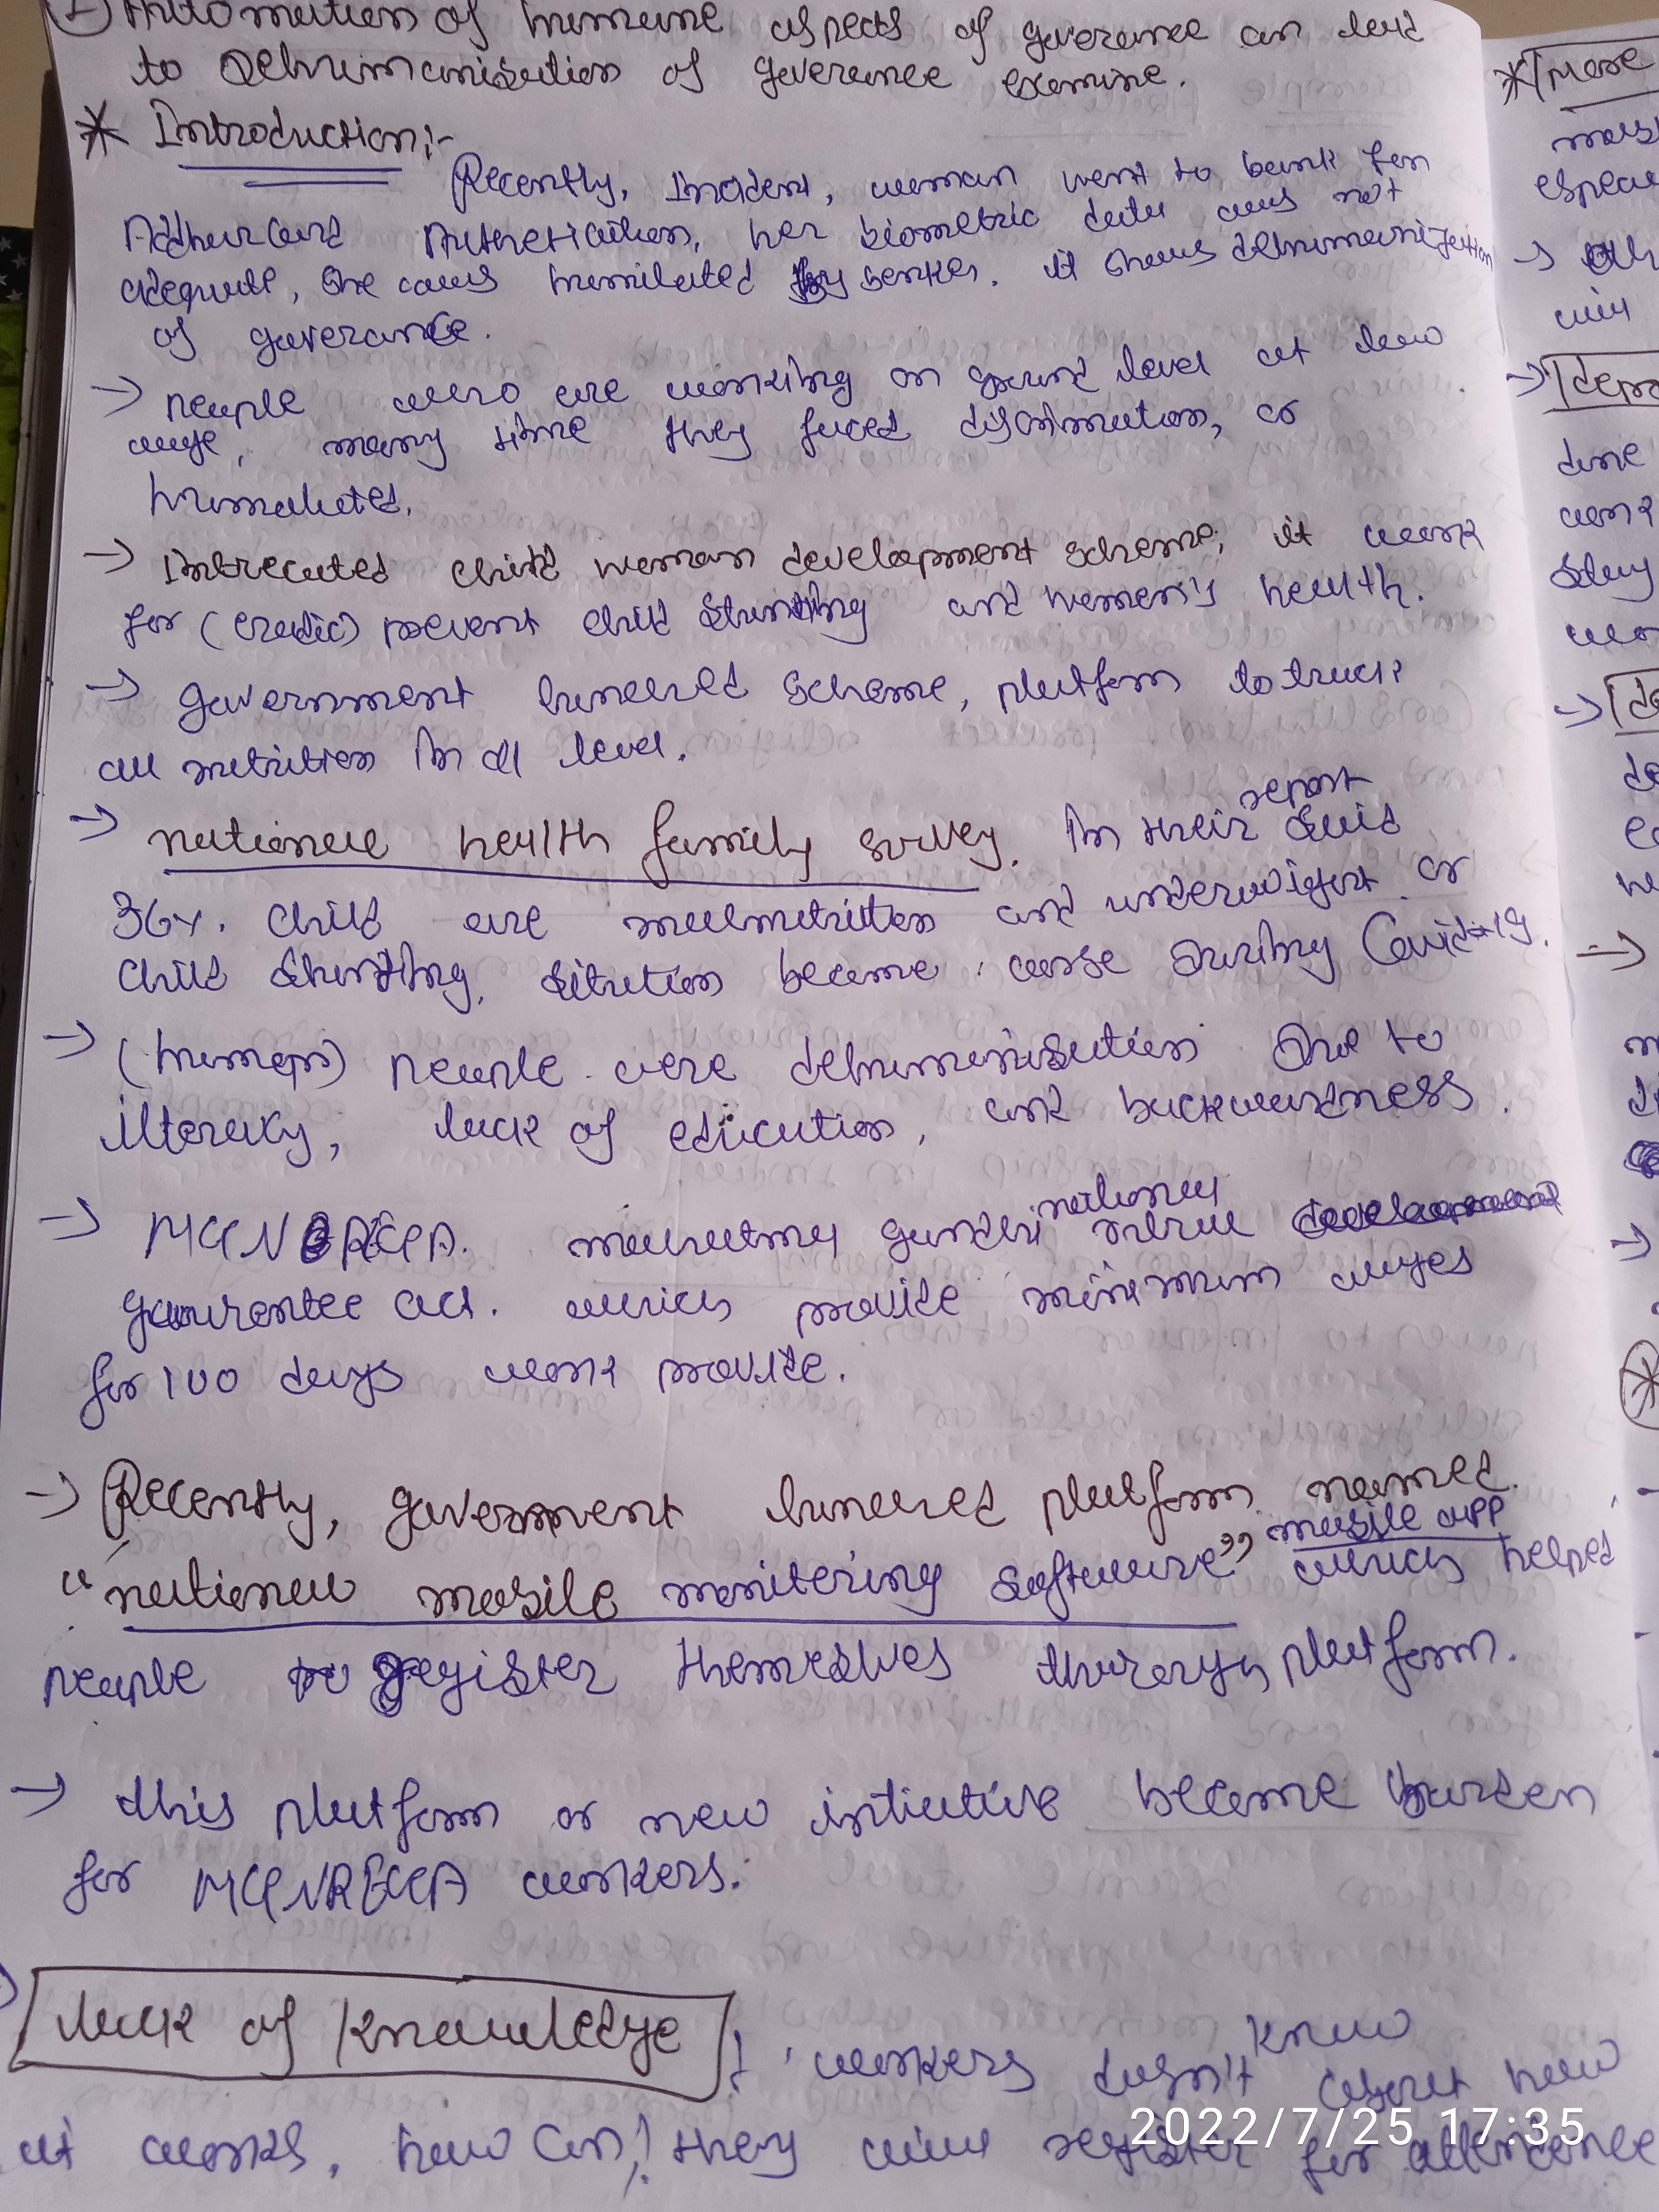 1) Automation of humane aspects of goverance can lead
to Dehumanisation of goverance examine.
* Introduction:-
Recently, Incident, woman went to bank for
Adharcard Authetication, her biometric data was not
adequate, She was humilated by banker. it shows dehumanization
of goverance.
→ people who are working on ground level at low
wage, many time they faced discrimination, or
humaleted.
→ Intrecated child woman development scheme, it work
for (eradic) prevent child stunting and women's health.
→ government launched scheme, platform to track
all nutrition in all level.
→ national health family survey. In their report said
36%. child are malnutrition and underwight or
child stunting, sitution become worse during Covid-19.
→ (human) people were dehumanisation due to
illteracy, lack of education, and backwardness.
→ MGNREGA. mahatma gandhi national rural
gaurentee act. which provide minimum wages
for 100 days work provide.
→ Recently, government launched platform named.
"national mobile monitering software" mobile app which helped
people to register themeslves thorough platform.
→ this platform or new intiative become burden
for MGNREGA workers.
lack of knowledge : workers dosn't know about how
it works, how can they will register for attendence
2022/7/25 17:35
* more
→ oth
will
→
done
work
→ de
→
→